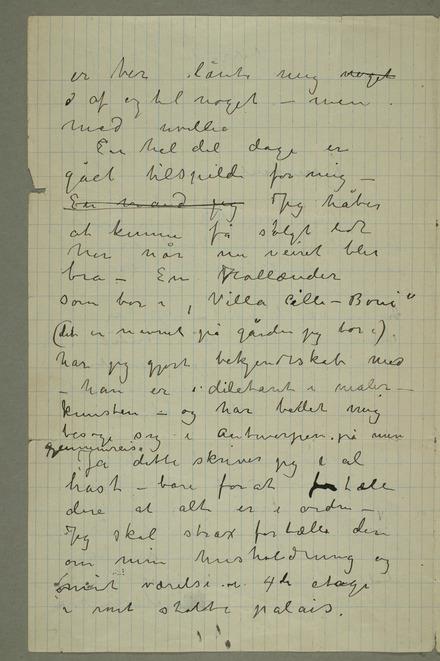 er her lånt mig noget
 af og til noget – men
med uvillie
En hel del dage er
gået tilspilde for mig –
En mand jeg Jeg håber
at kunne få solgt lidt
her når nu veiret blir
bra – En Hollænder
som bor i „Villa Cille-Boni“
(det er navnet på gården jeg bor i).
har jeg gjort bekjendtskab med
– han er dilettant i maler–
kunsten – og har bedet mig
besøge sig i Antwerpen på min
gjennemreise.
Ja dette skriver jeg i al
hast – bare for at fortælle
dere at alt er i orden –
Jeg skal strax fortælle dere
om min husholdning og
mit værelse i 4de etage
i mit stolte palais.